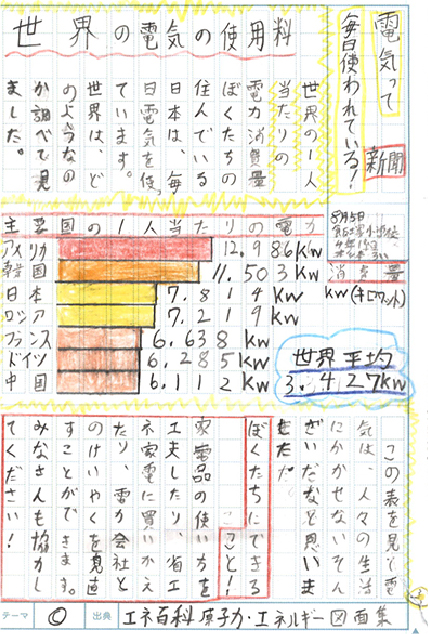 電気って
毎日使われている!
新聞
世界の電気の使用料
世界の1人
当たりの
電力消費量
ぼくたちの
住んでいる
日本は、毎
日電気を使っ
ています。
世界は、ど
のようなの
か調べて見
ました。
8月5日
主要国の1人当たりの電力
消費量
アメリカ 12.986kw
韓国 11.503kw
日本 7.814kw
ロシア 7.219kw
フランス 6.638kw
ドイツ 6.285kw
中国 6.112kw
kw(キロワット)
世界平均
3.427kw
この表を見て電
気は、人々の生活
にかかせないそん
ざいだなと思いま
した。
ぼくたちにできる
こと!
家電品の使い方を
工夫したり、省エ
ネ家電に買いかえ
たり、電力会社と
のけいやくを見直
すことができます。
みなさんも協力し
てください!
テーマ ◎ 出典 エネ百科 原子力・エネルギー図面集